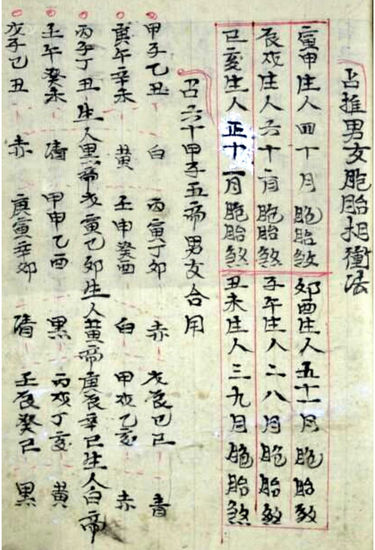 占推男女胞胎相衝法
寅申生人四十月胞胎煞
卯酉生人五十一月胞胎煞
辰戌生人六十二月胞胎煞
子午生人二八月胞胎煞
巳亥生人正十一月胞胎煞
丑未生人三九月胞胎煞
占六十甲子五帝男女合用
甲子乙丑 白 丙寅丁卯 赤 戊辰己巳 青
庚午辛未 黃 壬申癸酉 白 甲戌乙亥 赤
丙子丁丑生人黑帝戊寅己卯生人黃帝庚辰辛巳生人白帝
壬午癸未 清 甲申乙酉 黑 丙戌丁亥 黃
戊子己丑 赤 庚寅辛卯 清 壬辰癸巳 黑